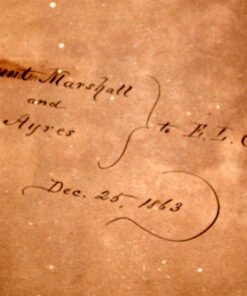 Marshall
and
Ayres
to E. L.
Dec. 25, 1863